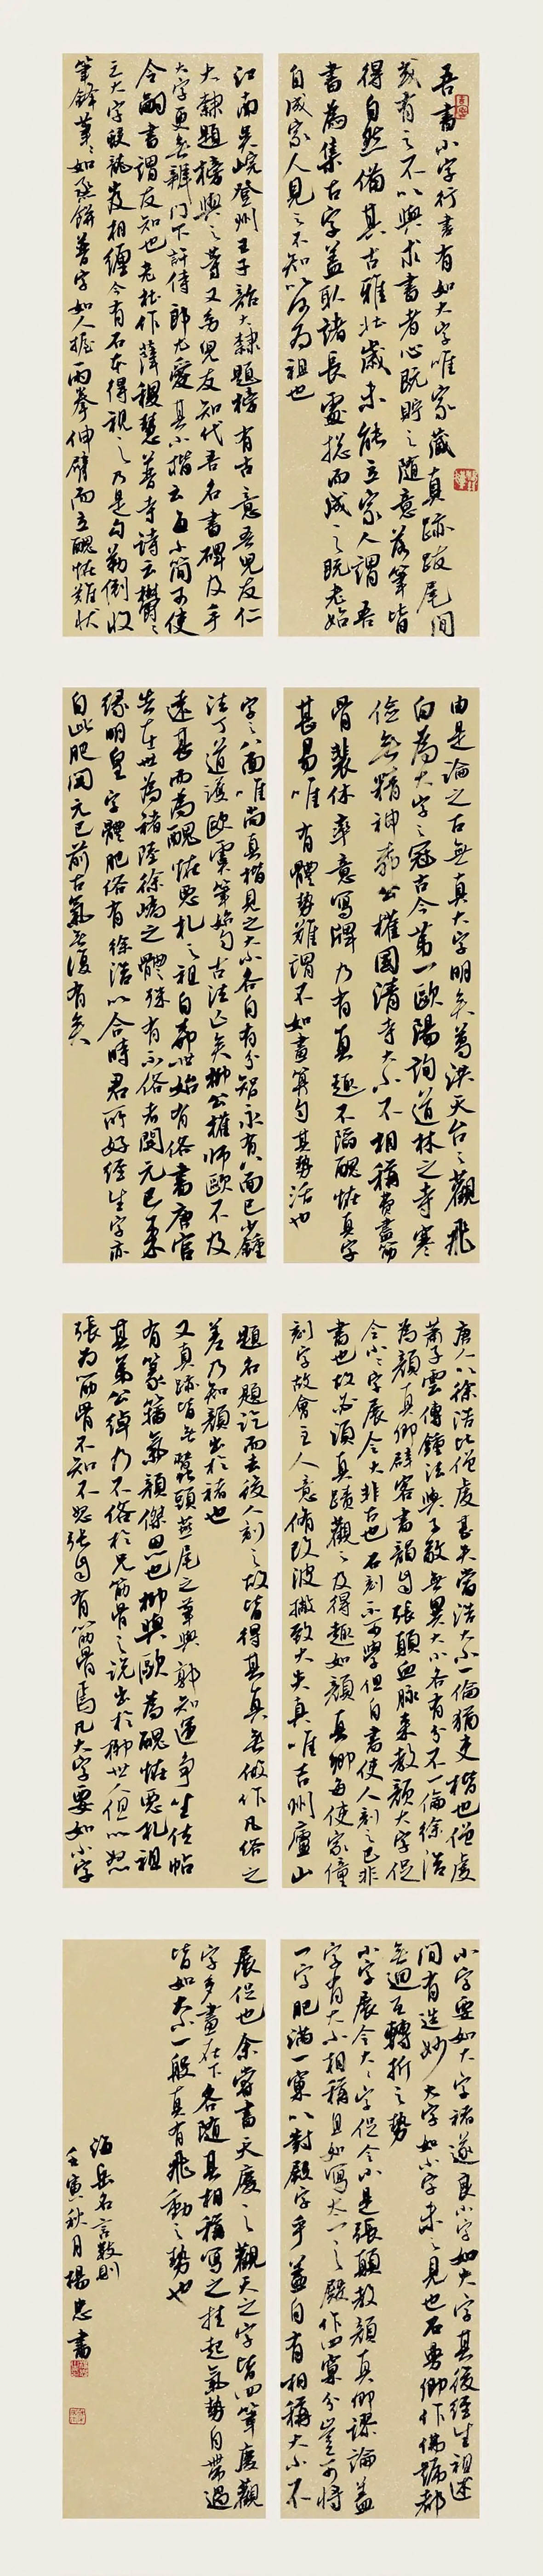 吾書小字行書有如大字唯家藏真跡跋尾間
或有之不以與求書者心既貯之隨意落筆皆
得自然備其古雅壯歲未能立家人謂吾
書為集古字蓋取諸長處總而成之既老始
自成家人見之不知以何為祖也
江南吳皖登州王子韶大隸題榜有古意吾兒友仁
大隸題榜與之等又幼兒友知代吾名書碑及手
大字更無辨門下許侍郎尤愛其小楷云每小簡可使
令嗣書謂友知也老杜作薛稷慧普寺詩云鬱鬱
三大字蛟龍岌相纏今有石本得視之乃是勾勒倒收
筆鋒筆筆如蒸餅普字如人握兩拳伸臂而立醜怪難狀
由是論之古無真大字明矣葛洪天台之觀飛
白為大字之冠古今第一歐陽詢道林之寺寒
儉無精神柳公權國清寺大小不相稱費盡筋
骨裴休率意寫牌乃有真趣不陷醜怪真字
甚易唯有體勢難謂不如畫算勻其勢活也
字之八面唯尚真楷見之大小各自有分智永有八面已少鍾
法丁道護歐虞筆始勻古法亡矣柳公權師歐不及
遠甚而為醜怪惡札之祖自柳世始有俗書唐官
告在世為褚陸徐嶠之體殊有不俗者開元已來
緣明皇字體肥俗有徐浩以合時君所好經生字亦
自此肥開元已前古氣無復有矣
唐人以徐浩比僧虔甚失當浩大小一倫猶吏楷也僧虔
蕭子雲傳鍾法與子敬無異大小各有分不一倫徐浩
為顏真卿辟客書韻自張顛血脈來教顏大字促
令小小字展令大非古也石刻不可學但自書使人刻之已非
書也故必須真蹟觀之乃得趣如顏真卿每使家僮
刻字故會主人意修改波撇致大失真唯吉州廬山
題名題訖而去後人刻之故皆得其真無做作凡俗之
差乃知顏出於褚也
又真跡皆無蠶頭燕尾之筆與郭知運爭坐位帖
有篆籀氣顏傑思也柳與歐為醜怪惡札祖
其弟公綽乃不俗於兄筋骨之說出於柳世人但以怒
張為筋骨不知不怒張自有筋骨焉凡大字要如小字
小字要如大字褚遂良小字如大字其後經生祖述
間有造妙大字如小字未之見也石曼卿作佛號都
無迴互轉折之勢
小字展令大大字促令小是張顛教顏真卿謬論蓋
字有大小相稱且如寫太一之殿作四窠分豈可將
一字肥滿一窠以對殿字乎蓋自有相稱大小不
展促也余嘗書天慶之觀天之字皆四筆慶觀
字多畫在下各隨其相稱寫之挂起氣勢自帶過
皆如大小一般真有飛動之勢也
海岳名言數則
壬寅秋月楊忠書